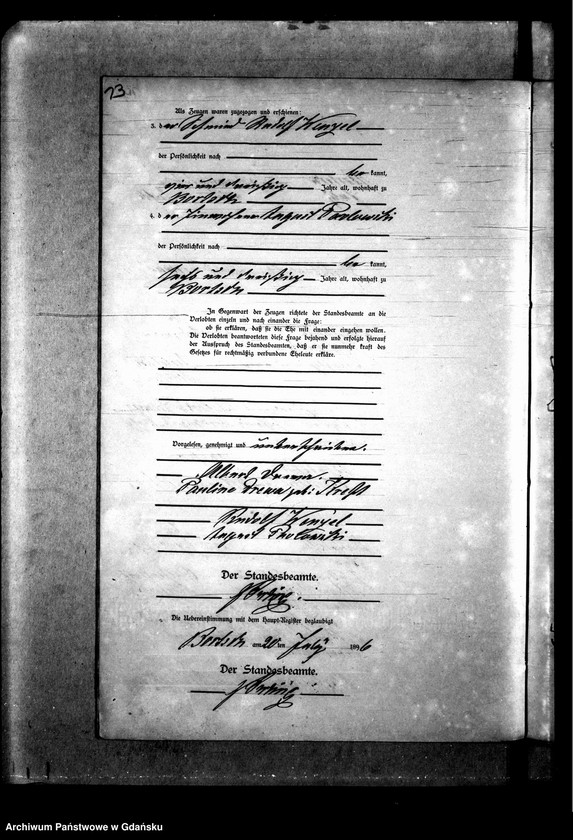 23
Als Zeugen waren zugezogen und erschienen:
3. der Schmied Rudolf Kenzel
der Persönlichkeit nach
be kannt,
vier und dreißig Jahre alt, wohnhaft zu
4. der Einwohner August Pawlowski
der Persönlichkeit nach
be kannt,
sechs und dreißig Jahre alt, wohnhaft zu
In Gegenwart der Zeugen richtete der Standesbeamte an die
Verlobten einzeln und nach einander die Frage:
ob sie erklären, daß sie die Ehe mit einander eingehen wollen.
Die Verlobten beantworteten diese Frage bejahend und erfolgte hierauf
der Ausspruch des Standesbeamten, daß er sie nunmehr kraft des
Gesetzes für rechtmäßig verbundene Eheleute erkläre.
Vorgelesen, genehmigt und unterschrieben.
Albert Drewa.
Pauline Drewa geb.
Rudolf Kenzel
August Pawlowski
Der Standesbeamte.
Die Uebereinstimmung mit dem Haupt-Register beglaubigt
am 20 ten July 1896
Der Standesbeamte.
Archiwum Państwowe w Gdańsku